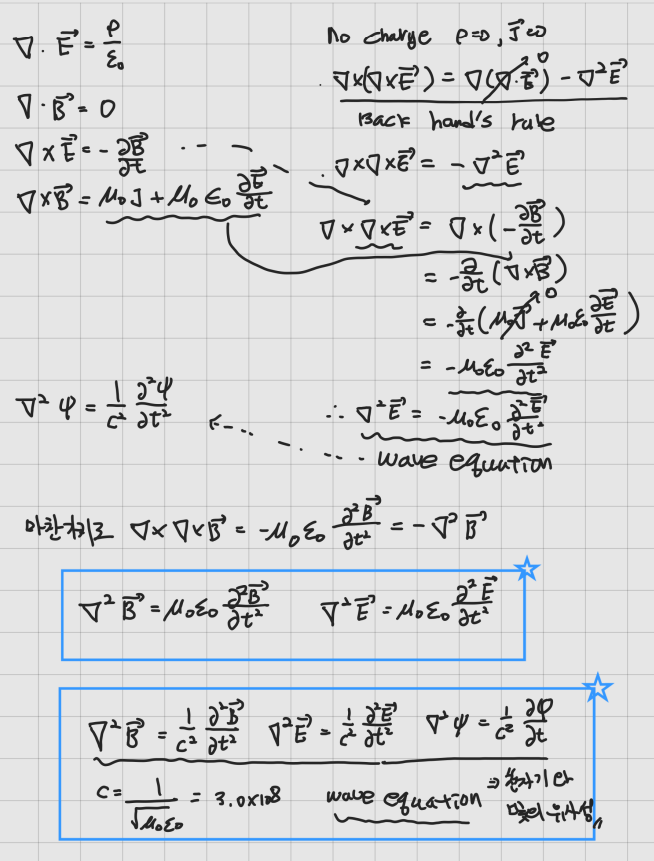 ∇ · E⃗ = ρ/ε₀
∇ · B⃗ = 0
∇ × E⃗ = - ∂B⃗/∂t
∇ × B⃗ = μ₀J + μ₀ε₀ ∂E⃗/∂t
No charge ρ=0, J⃗=0
∇×(∇×E⃗) = ∇(∇·E⃗)→0 - ∇²E⃗
Back hand's rule
∇×∇×E⃗ = - ∇²E⃗
∇×∇×E⃗ = ∇×(-∂B⃗/∂t)
= -∂/∂t (∇×B⃗)
= -∂/∂t (μ₀J⃗→0 + μ₀ε₀ ∂E⃗/∂t)
= -μ₀ε₀ ∂²E⃗/∂t²
∴ ∇²E⃗ = -μ₀ε₀ ∂²E⃗/∂t²
wave equation
∇²ψ = 1/c² ∂²ψ/∂t²
마찬가지로 ∇×∇×B⃗ = -μ₀ε₀ ∂²B⃗/∂t² = -∇²B⃗
∇²B⃗ = μ₀ε₀ ∂²B⃗/∂t² ∇²E⃗ = μ₀ε₀ ∂²E⃗/∂t²
∇²B⃗ = 1/c² ∂²B⃗/∂t² ∇²E⃗ = 1/c² ∂²E⃗/∂t² ∇²ψ = 1/c² ∂ψ/∂t
c = 1/√μ₀ε₀ = 3.0×10⁸ wave equation ⇒